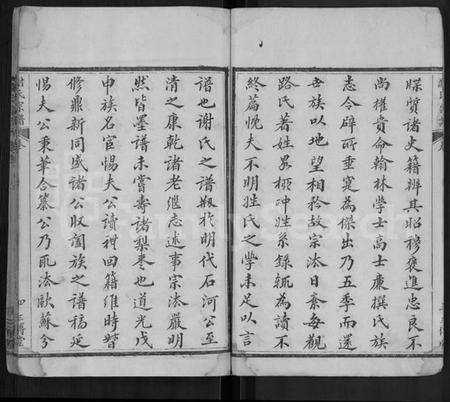 牒質諸史籍辨其昭穆褒進忠良不
尚權貴命翰林學士高士廉撰氏族
志今辟所垂寔為傑出乃五季而還
世族以地望相矜故宗法日紊每觀
路氏著姓畧栁冲姓系錄輒為讀不
終篇慨夫不明姓氏之學未足以言
譜也謝氏之譜叙於明代石河公至
清之康乾諸老繼志述事宗法嚴明
然皆墨譜未嘗壽諸梨棗也道光戊
申族名宦惕夫公讀禮回籍維時督
修鼎新同感諸公取闔族之譜稿延
惕夫公秉筆合纂公乃瓱法歐蘇兮
四